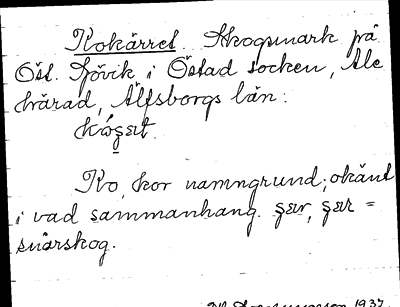 Kokärret Skogsmark på
Öst. Sjövik i Östad socken, Ale
härad, Älfsborgs län:
Ko, kor namngrund; okänt
i vad sammanhang. şær, şær =
snårskog.
1937